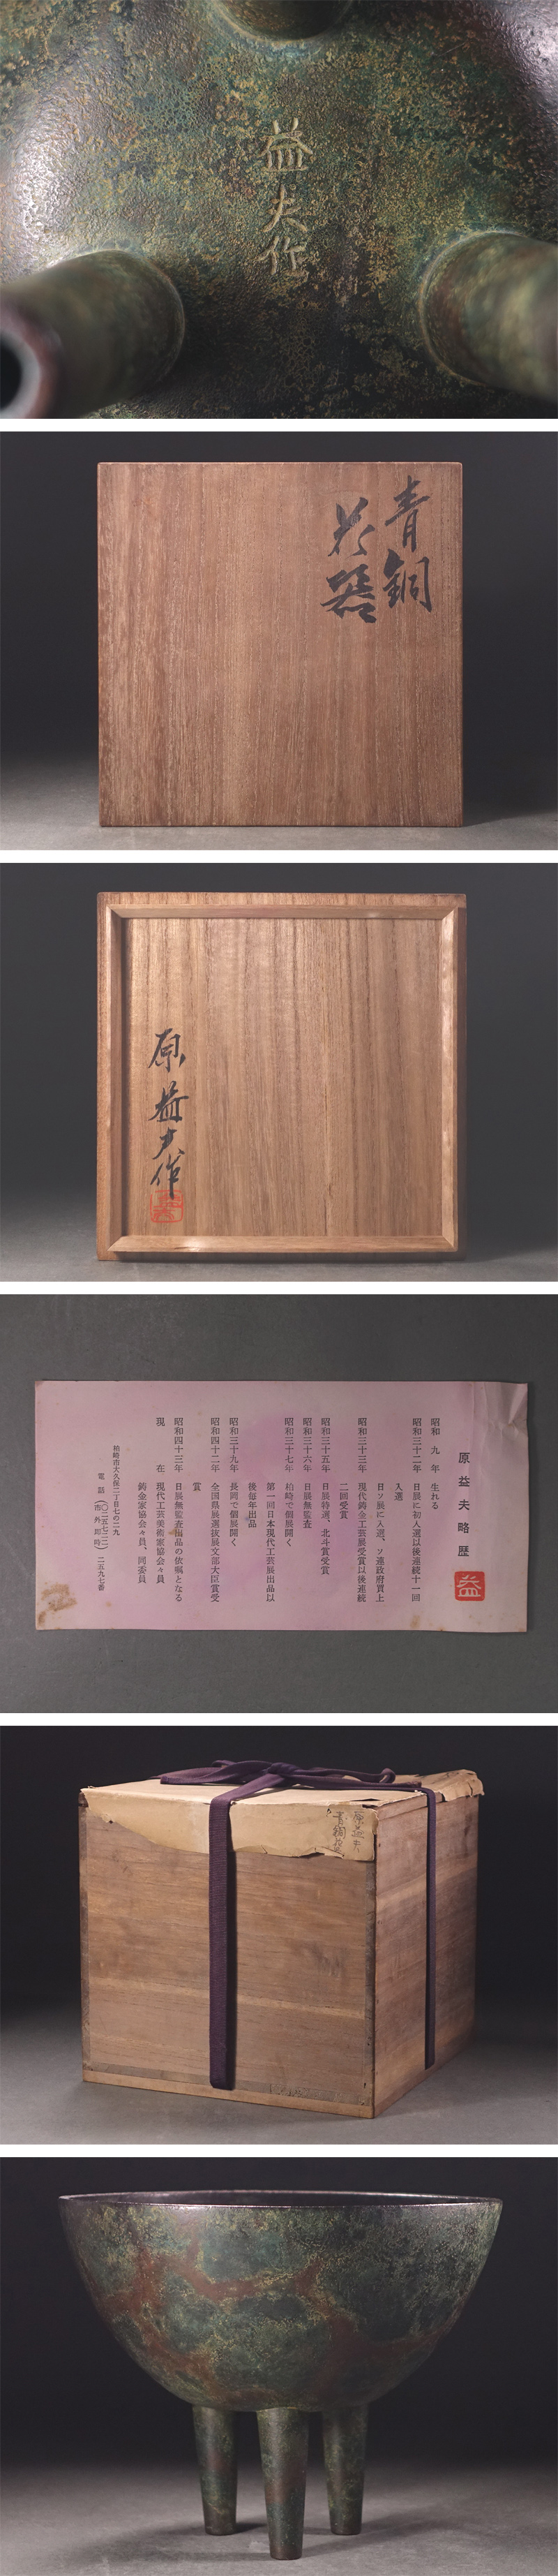 益夫作
青銅
花器
原益夫作
原益夫略歴
益
昭和九年 生れる
昭和三十二年 日展に初入選以後連続十一回
入選
日ソ展に入選、ソ連政府買上
昭和三十三年 現代鋳金工芸展受賞以後連続
二回受賞
昭和三十五年 日展特選、北斗賞受賞
昭和三十六年 日展無鑑査
昭和三十七年 柏崎で個展開く
第一回日本現代工芸展出品以
後毎年出品
昭和三十九年 長岡で個展開く
昭和四十二年 全国県展選抜展文部大臣賞受
賞
昭和四十三年 日展無鑑査出品の依嘱となる
現在 現代工芸美術家協会々員
鋳金家協会々員、同委員
柏崎市大久保二丁目七の二九
電話(〇二五七二)二五九七番
(市外即時)
原益夫
青銅